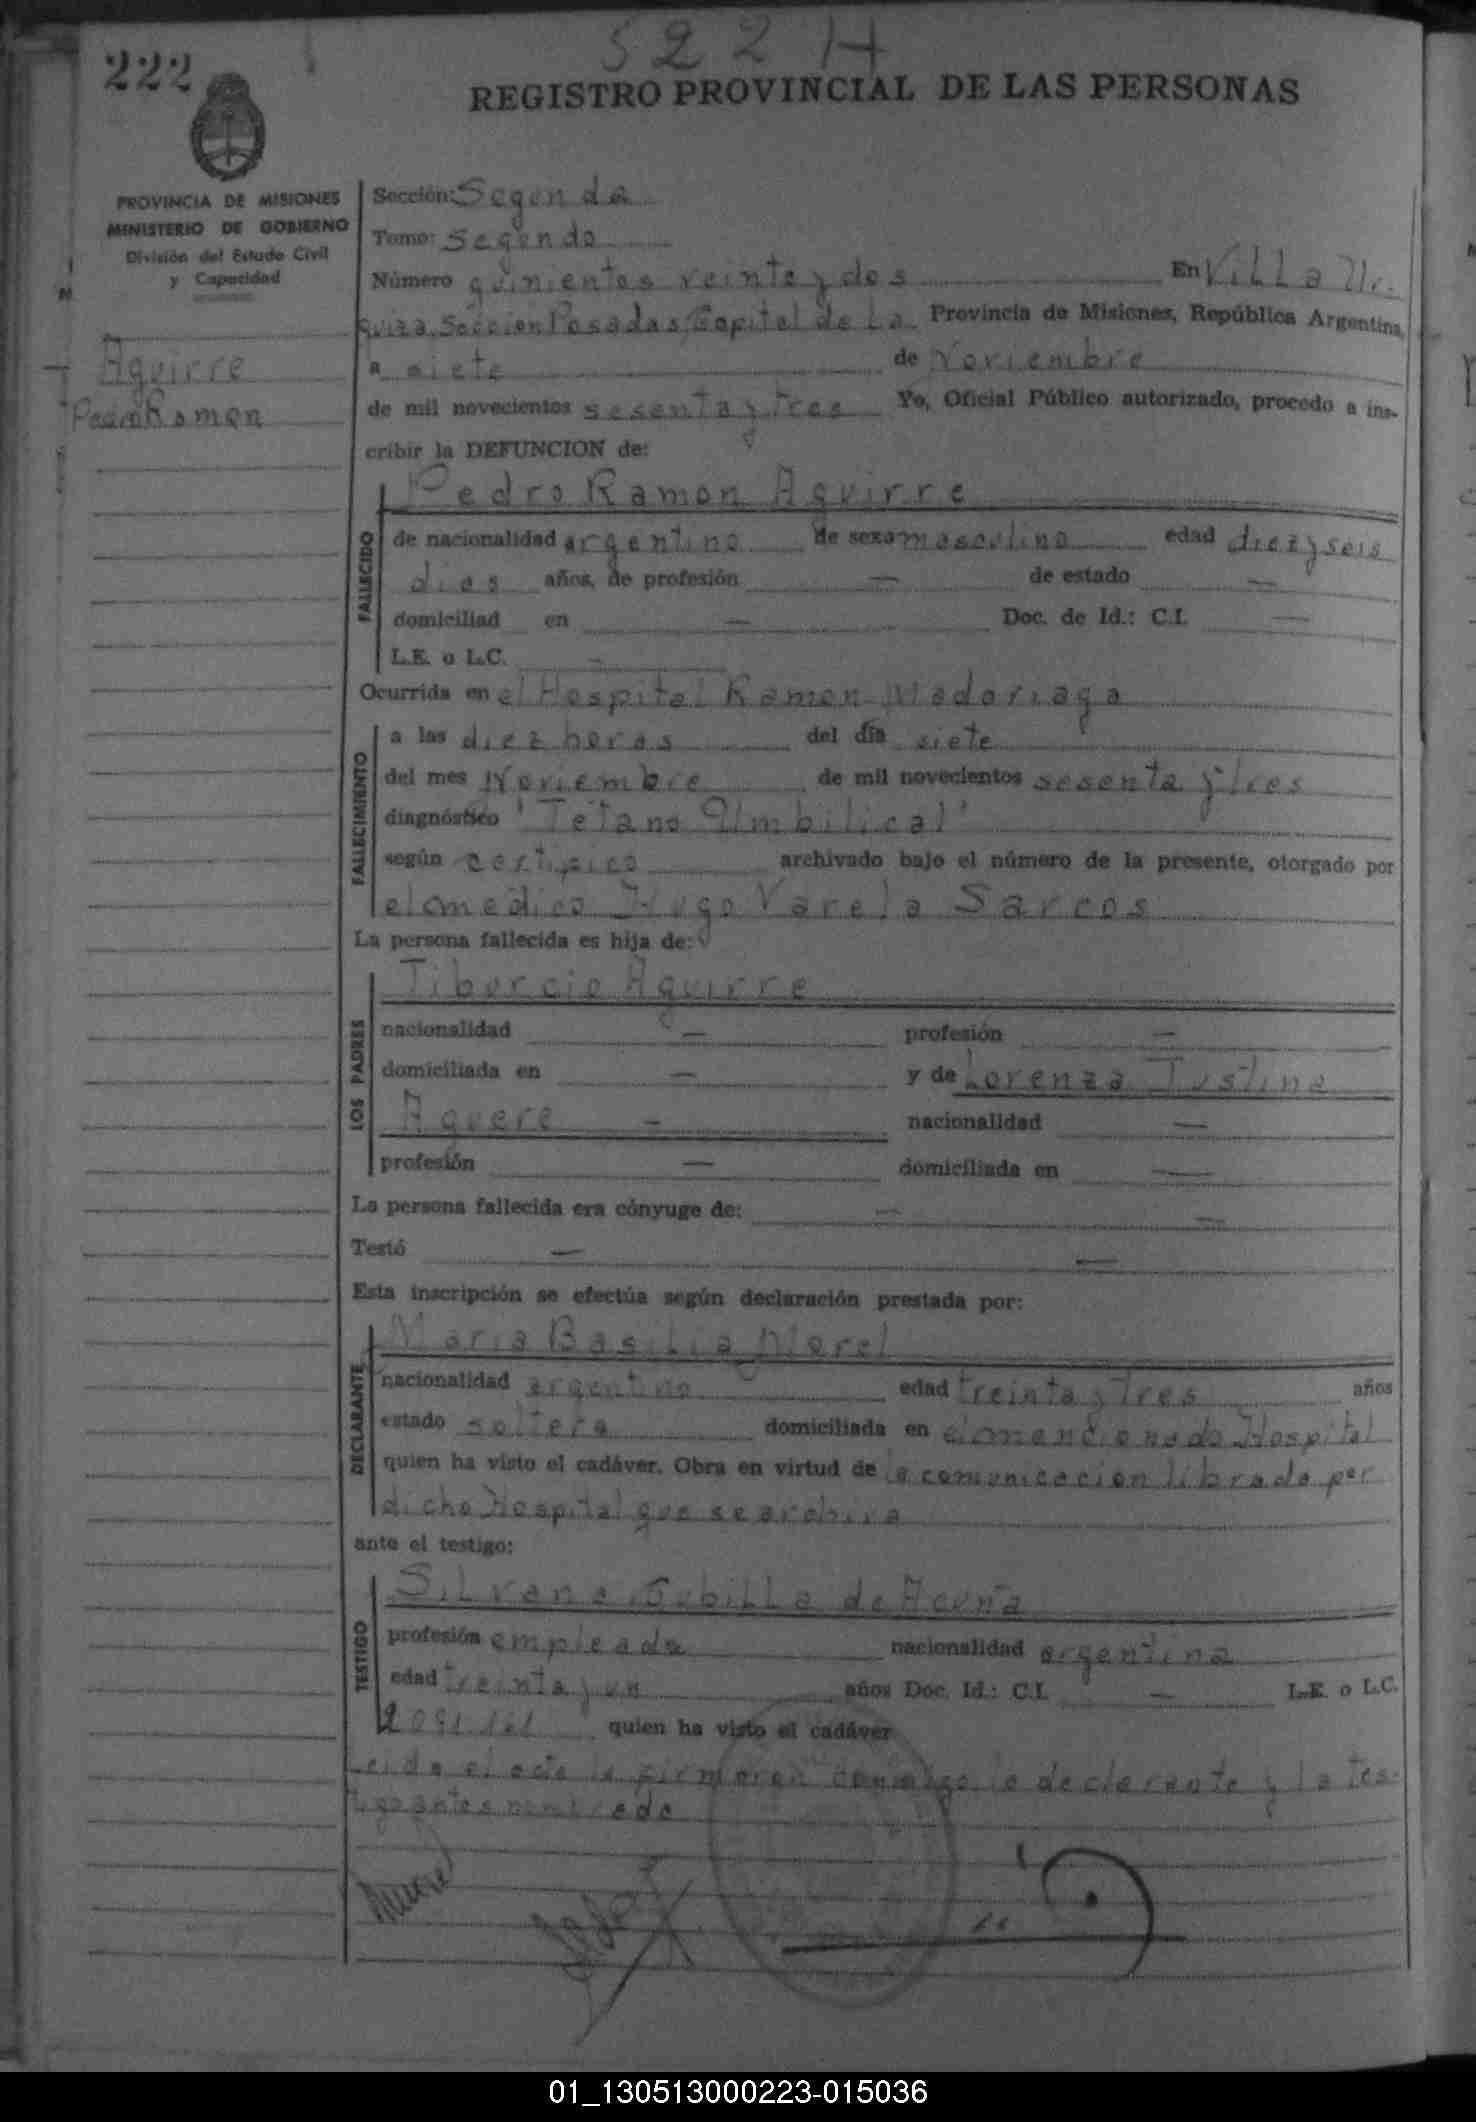 522 H
222
REGISTRO PROVINCIAL DE LAS PERSONAS
PROVINCIA DE MISIONES
MINISTERIO DE GOBIERNO
División del Estado Civil
y Capacidad
Aguirre
Pedro Ramon
Sección: Segunda
Tomo: Segundo
Número quinientos veinte y dos En Villa Ur-
quiza, Seccion Posadas, Capital de La Provincia de Misiones, República Argentina,
a siete de Noviembre
de mil novecientos sesenta y tres Yo, Oficial Público autorizado, procedo a ins-
cribir la DEFUNCION de:
Pedro Ramon Aguirre
FALLECIDO
de nacionalidad argentino de sexo masculino edad diez y seis
dias años, de profesión — de estado —
domiciliad en — Doc. de Id.: C.I. —
L.E. o L.C. —
Ocurrida en el Hospital Ramon Madariaga
FALLECIMIENTO
a las diez horas del día siete
del mes Noviembre de mil novecientos sesenta y tres
diagnóstico "Tetano Umbilical"
según archivado bajo el número de la presente, otorgado por
el medico Hugo Varela Sarcos
La persona fallecida es hija de:
LOS PADRES
Tiburcio Aguirre
nacionalidad — profesión —
domiciliada en — y de Lorenza Justina
Aguere — nacionalidad —
profesión — domiciliada en —
La persona fallecida era cónyuge de: — —
Testó — —
Esta inscripción se efectúa según declaración prestada por:
DECLARANTE
Maria Basilia Morel
nacionalidad argentina edad treinta y tres años
estado soltera domiciliada en el mencionado Hospital
quien ha visto el cadáver. Obra en virtud de la comunicacion librada por
dicho Hospital que se archiva
ante el testigo:
TESTIGO
Silvana Cubilla de Acuña
profesión empleada nacionalidad argentina
edad treinta y un años Doc. Id.: C.I. — L.E. o L.C.
2091.161 quien ha visto el cadáver
Leida el acta la firmaron conmigo la declarante y la tes-
tigo antes nombrada
01_130513000223-015036